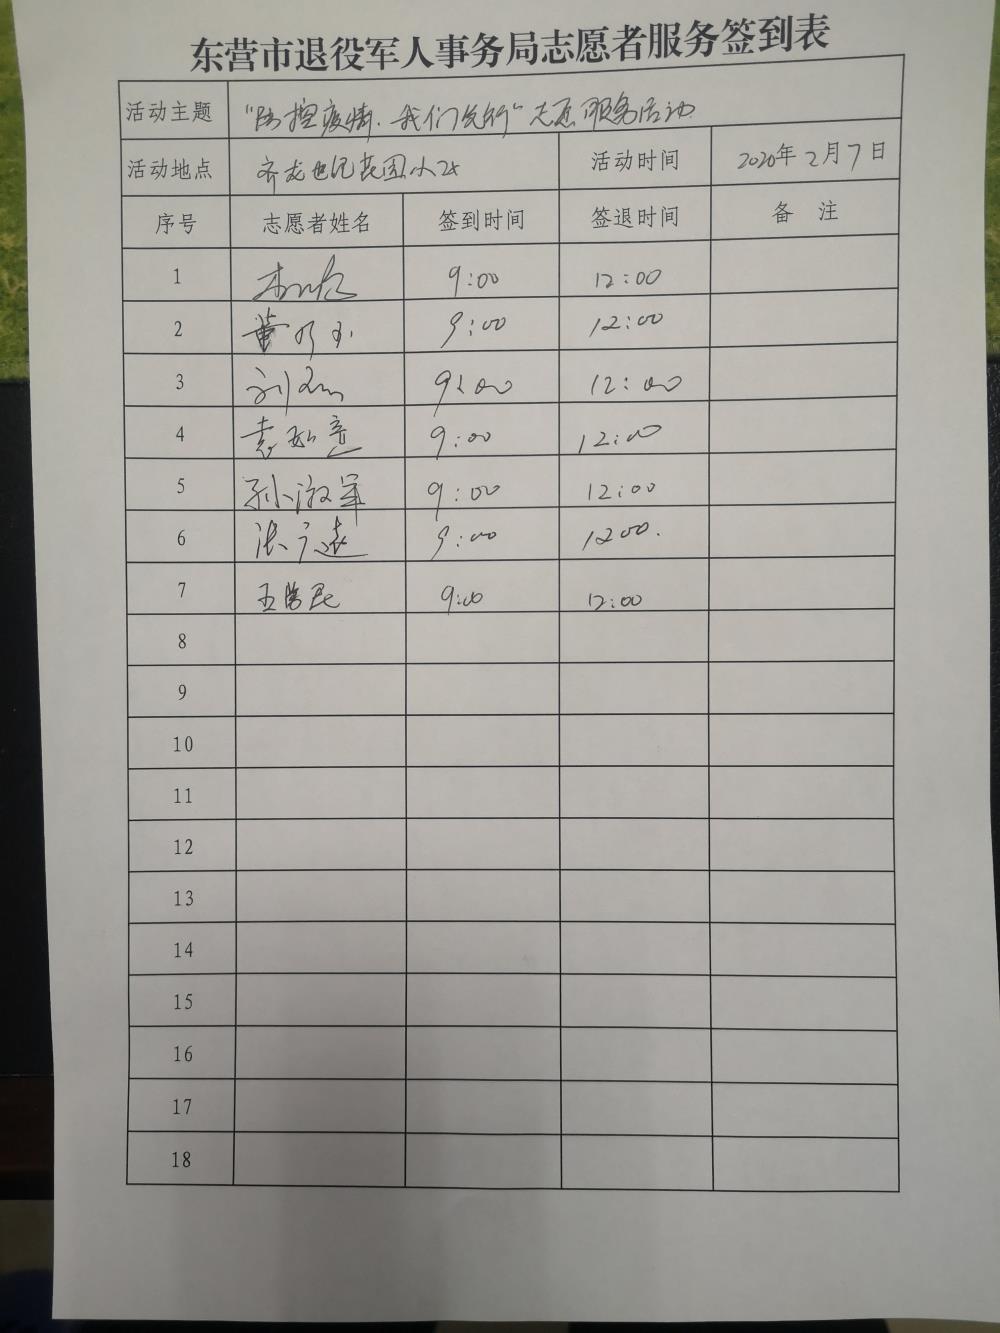 东营市退役军人事务局志愿者服务签到表
活动主题 “防控疫情、我们先行”志愿服务活动
活动地点 齐龙世纪花园小区 活动时间 2020年2月7日
序号 志愿者姓名 签到时间 签退时间 备 注
1 9:00 12:00
2 董 9:00 12:00
3 刘 9:00 12:00
4 袁 9:00 12:00
5 孙淑军 9:00 12:00
6 张 9:00 1200.
7 王 9:00 12:00
8
9
10
11
12
13
14
15
16
17
18